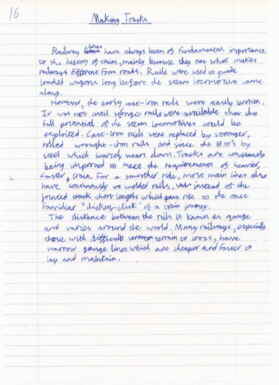 16
Making Tracks
Railway lines have always been of fundamental importance
to the history of trains, mainly because they are what makes
railways different from roads. Rails were used to guide
loaded wagons long before the steam locomotive came
along.
However, the early cast-iron rails were easily broken.
It was not until stronger rails were available that the
full potential of the steam locomotives would be
exploited. Cast-iron rails were replaced by stronger,
rolled wrought-iron rails, and since the 1870's by
steel which barely wears down. Tracks are constantly
being improved to meet the requirements of heavier,
faster, trains. For a smoother ride, most main lines also
have continuously welded rails, instead of the
jointed short lengths which gave rise to the once
familiar "clickety-clack" of a train journey.
The distance between the rails is known as gauge
and varies around the world. Many railways, especially
those with difficult terrain or areas, have
narrow gauge lines which are cheaper and faster to
lay and maintain.